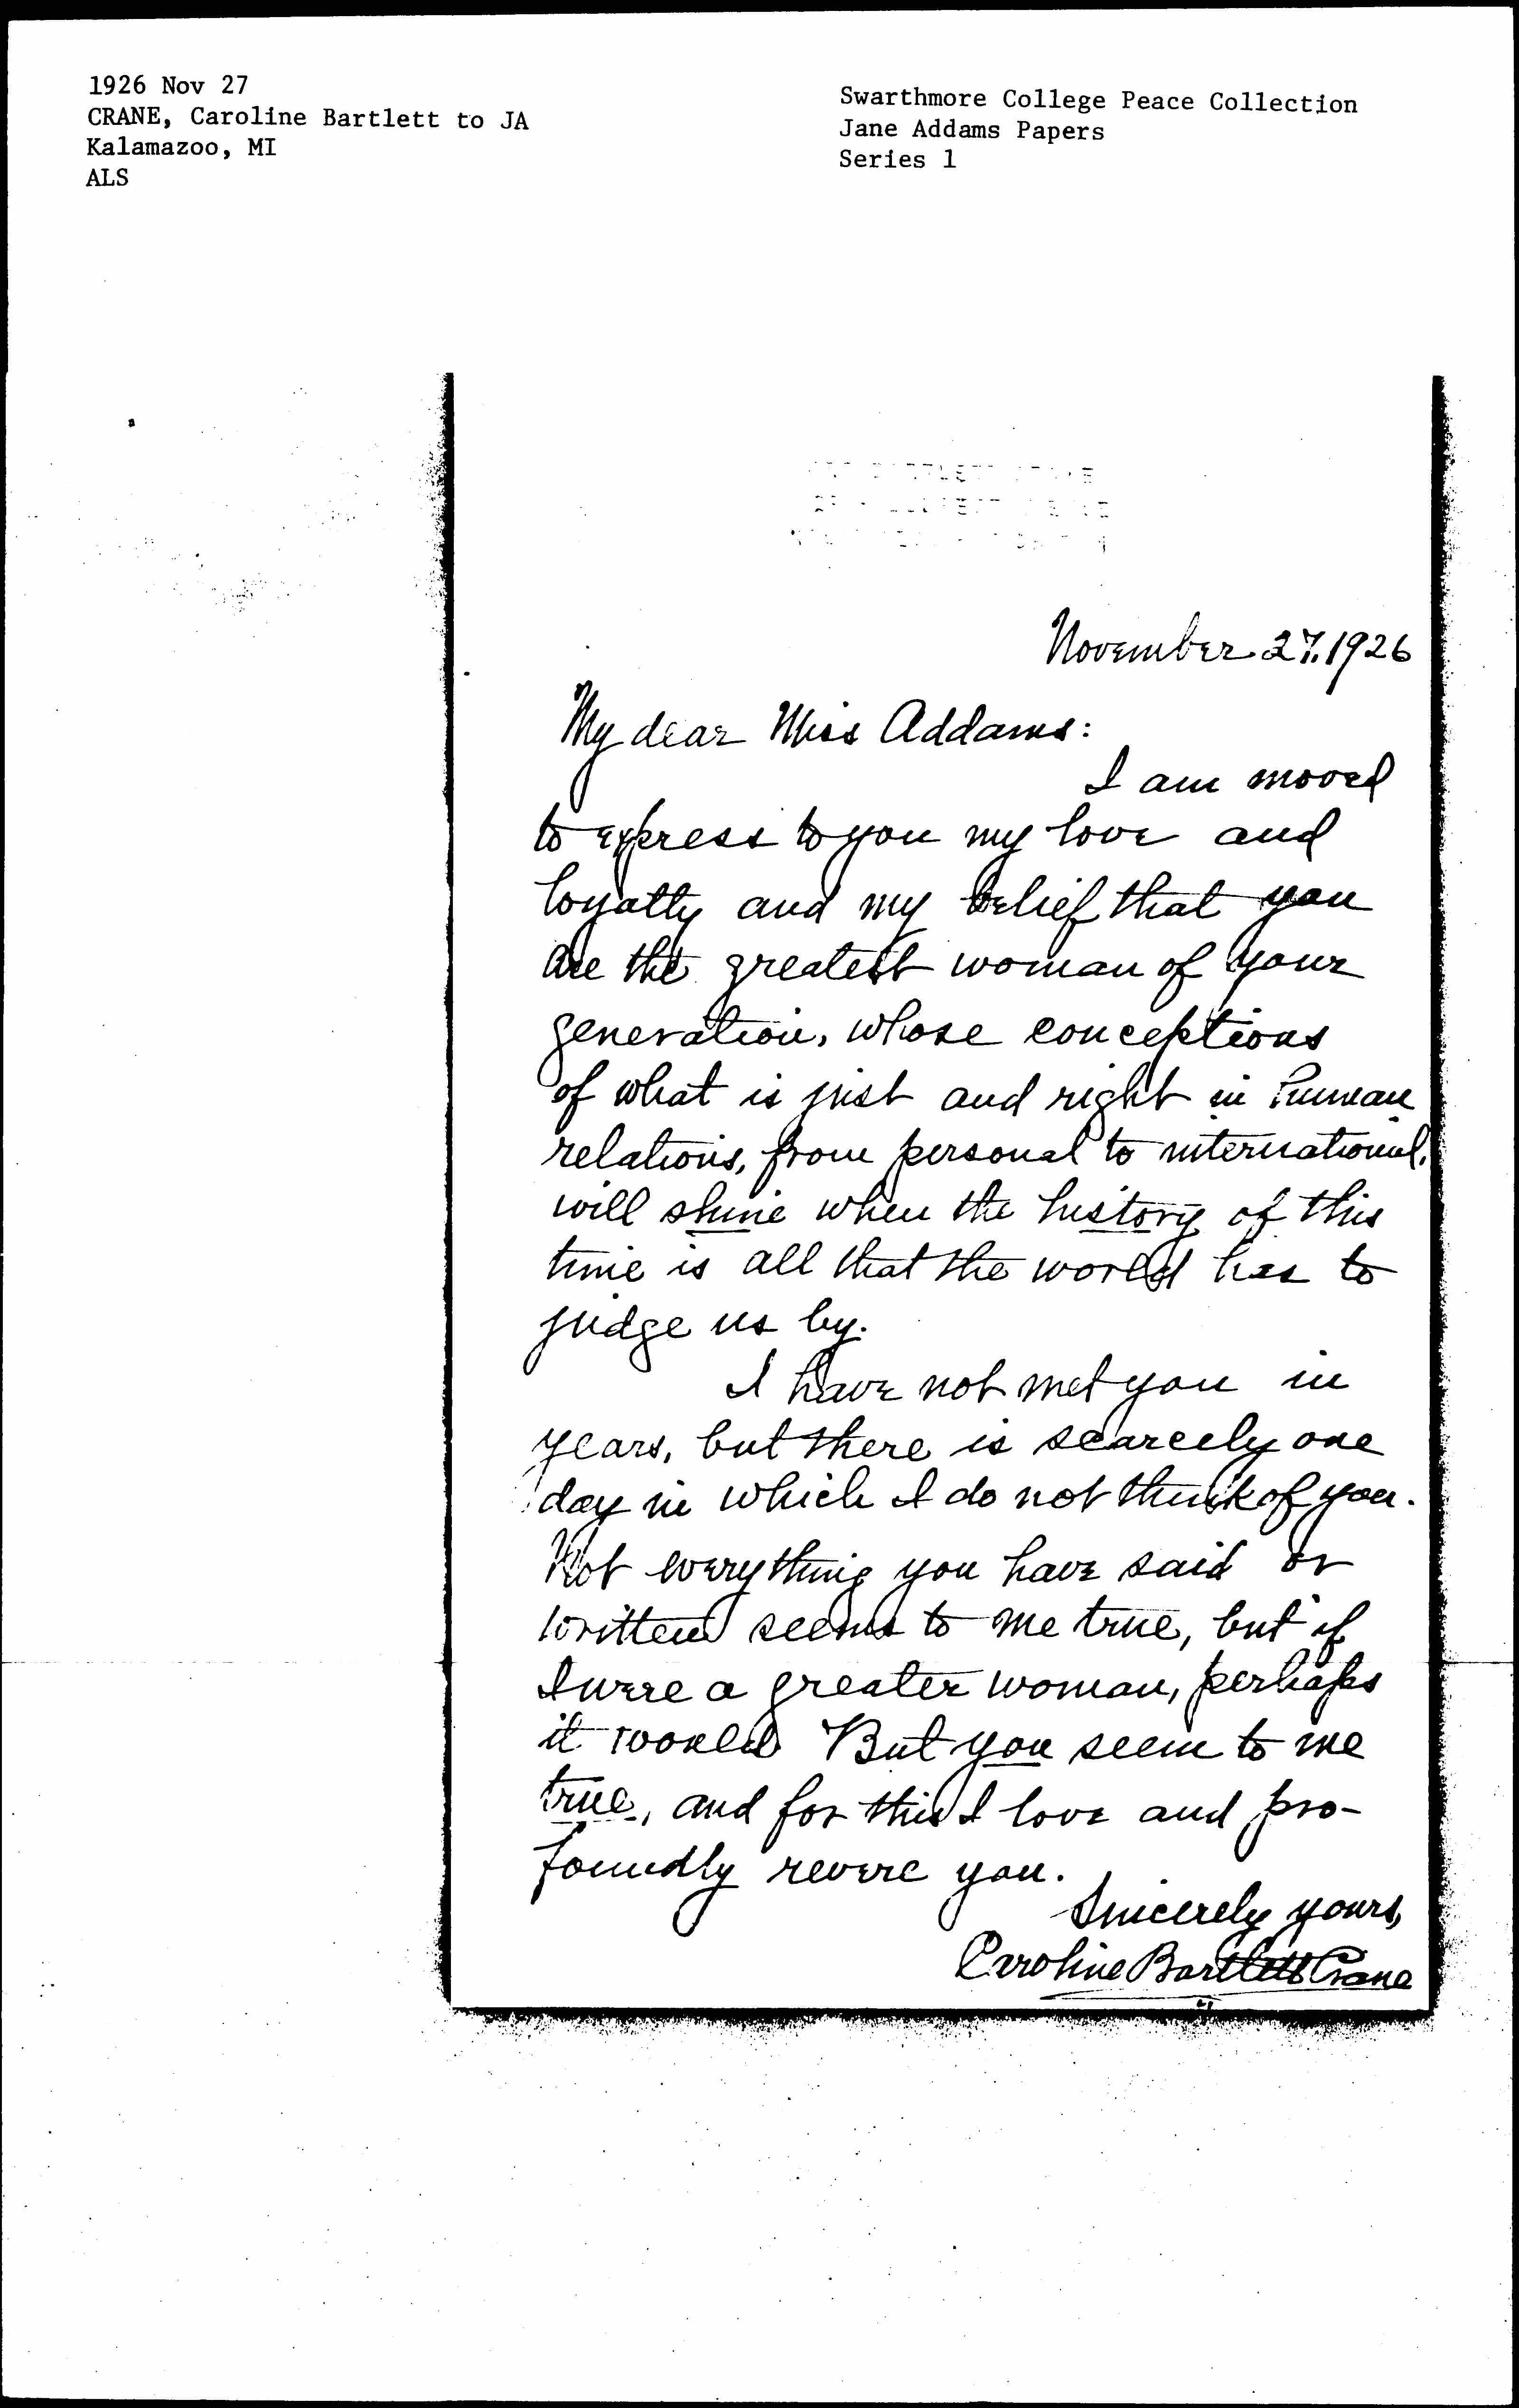 1926 Nov 27
CRANE, Caroline Bartlett to JA
Kalamazoo, MI
ALS
Swarthmore College Peace Collection
Jane Addams Papers
Series 1
November 27, 1926
My dear Miss Addams:
I am moved
to express to you my love and
loyalty and my belief that you
are the greatest woman of your
generation, whose conceptions
of what is just and right in human
relations, from personal to international,
will shine when the history of this
time is all that the world has to
judge us by.
I have not met you in
years, but there is scarcely one
day in which I do not think of you.
Not everything you have said or
written seems to me true, but if
I were a greater woman, perhaps
it would But you seem to me
true, and for this I love and pro-
foundly revere you.
Sincerely yours,
Caroline Bartlett Crane